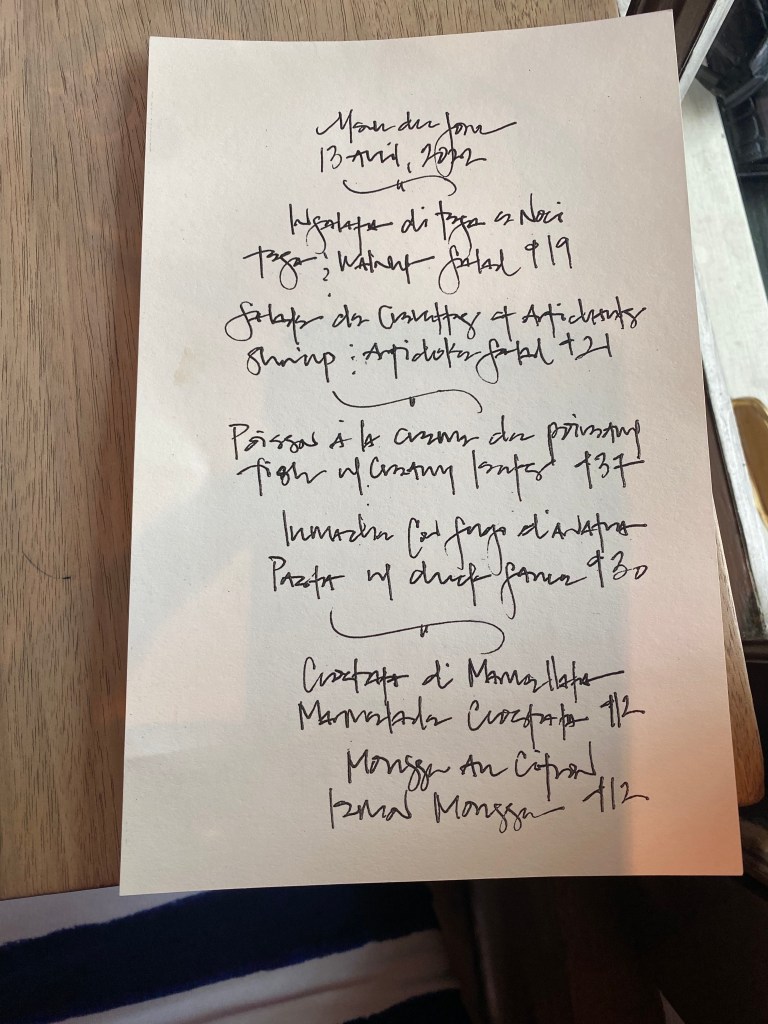 Menu du Jour
13 Avril, 2022
Insalata di Fega e Noci
Fega & Walnut Salad $19
Salade de Crevettes et Artichauts
Shrimp & Artichoke Salad $21
Poisson à la creme de poireaux
Fish w/ Creamy leeks $37
Lumache Con Sugo d'anatra
Pasta w/ duck Sauce $30
Crostata di Marmellata
Marmelade Crostata $12
Mousse Au Citron
Lemon Mousse $12